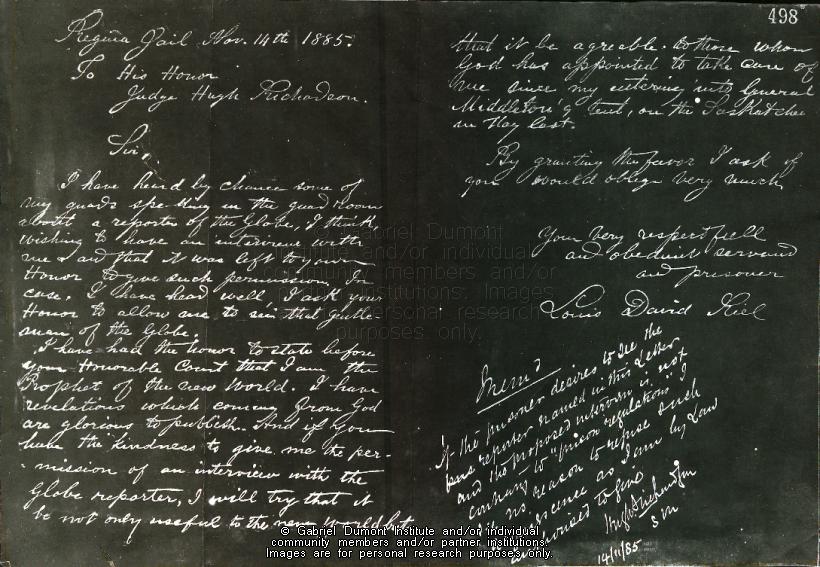 498
Regina Jail Nov. 14th 1885.
To His Honor
Judge Hugh Richardson.
Sir,
I have heard by chance some of
my guards speaking in the guard room
about a reporter of the Globe, I think
wishing to have an interview with
me and that it was left to your
Honor to give such permission. In
case, I have head well, I ask your
Honor to allow me to see that gentle-
man of the Globe.
I have had the honor to state before
your Honorable Court that I am the
Prophet of the new world. I have
revelations which coming from God
are glorious to publish. And if you
have the kindness to give me the per-
mission of an interview with the
Globe reporter, I will try that it
be not only useful to the new world but
that it be agreable to those whom
God has appointed to take care of
me since my entering into General
Middleton's tent, on the Saskatchew
in May last.
By granting the favor I ask of
you would oblige very much,
Your very respectfull
and obedient servand
and prisoner
Louis David Riel
Mem?
If the prisoner desires to see the
press reporter named in this letter
and the proposed interview is not
contrary to "prison regulations" I
see no reason to refuse such
as I am by Law
authorised to give
Hugh Richardson
S M
14/11/85
Gabriel Dumont
Institute and/or individual
community members and/or
partner institutions. Images
are for personal research
purposes only.
© Gabriel Dumont Institute and/or individual
community members and/or partner institutions.
Images are for personal research purposes only.